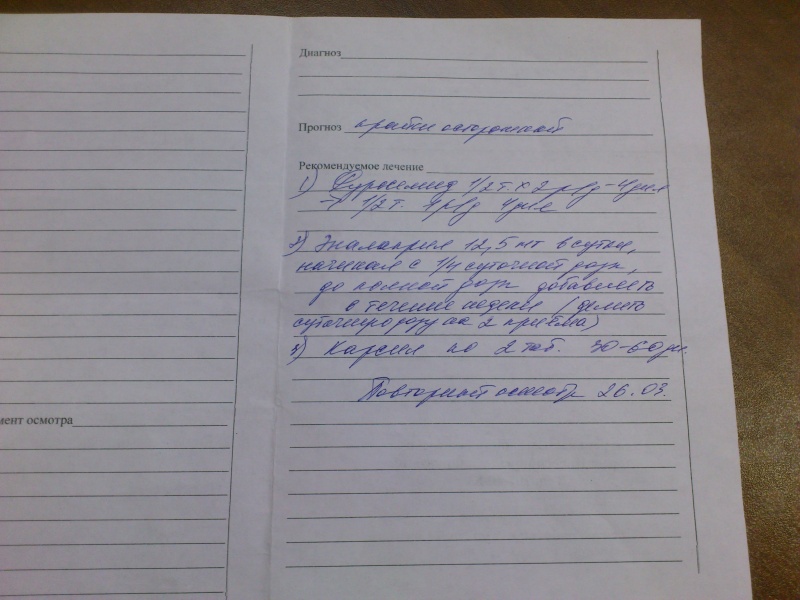 Диагноз
Прогноз крайне осторожный
Рекомендуемое лечение
1) Фуросемид 1/2 т. х 2 р/д - 4 дня
→ 1/2 т. 1 р/д 4 дня
2) Эналаприл 12,5 мг в сутки,
начиная с 1/4 суточной дозы,
до полной дозы добавлять
в течение недели (делить
суточную дозу на 2 приёма)
3) Карсил по 2 таб. 30-60 дн.
Повторный осмотр 26.03.
мент осмотра